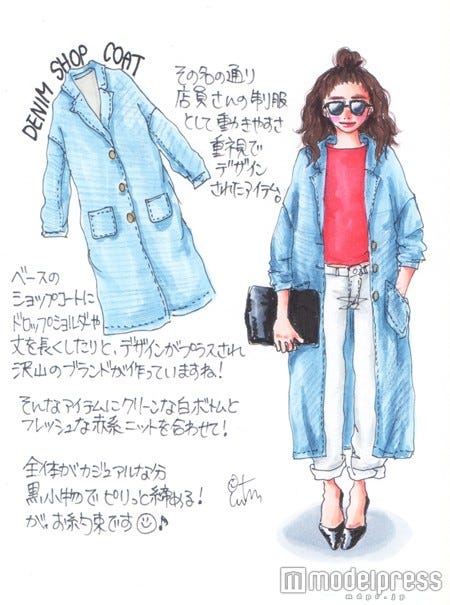 DENIM SHOP COAT
その名の通り
店員さんの制服
として動きやすさ
重視で
デザイン
されたアイテム。
ベースの
ショップコートに
ドロップショルダや
丈を長くしたりと、デザインがプラスされ
沢山のブランドが作っていますね！
そんなアイテムにクリーンな白ボトムと
フレッシュな赤系ニットを合わせて！
全体がカジュアルな分
黒小物でピリっと締める！
が、お約束です☺♪
modelpress
mdpr.jp